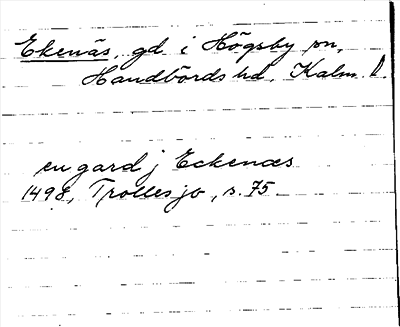 Ekenäs, gd i Högsby sn,
Handbörds hd, Kalm. l.
en gard j Eckenæs
1498, Trollesjo, s. 75